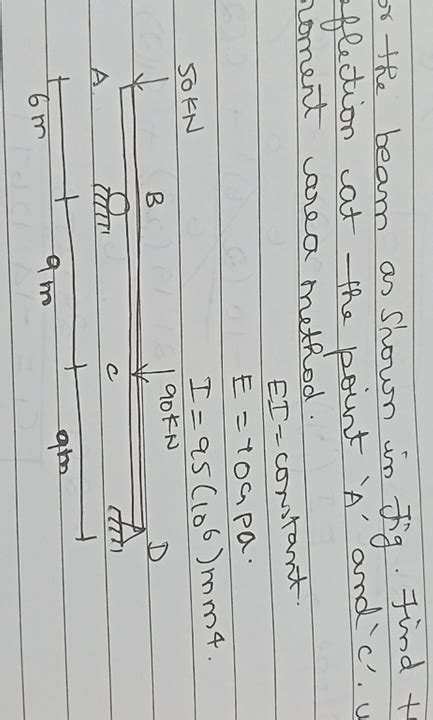 or the beam as shown in fig. Find t
eflection at the point 'A' and 'C'. u
moment area method.
EI = constant.
E = 70Gpa.
I = 95(10⁶)mm⁴.
50KN
90KN
A B C D
6m 9m 9m